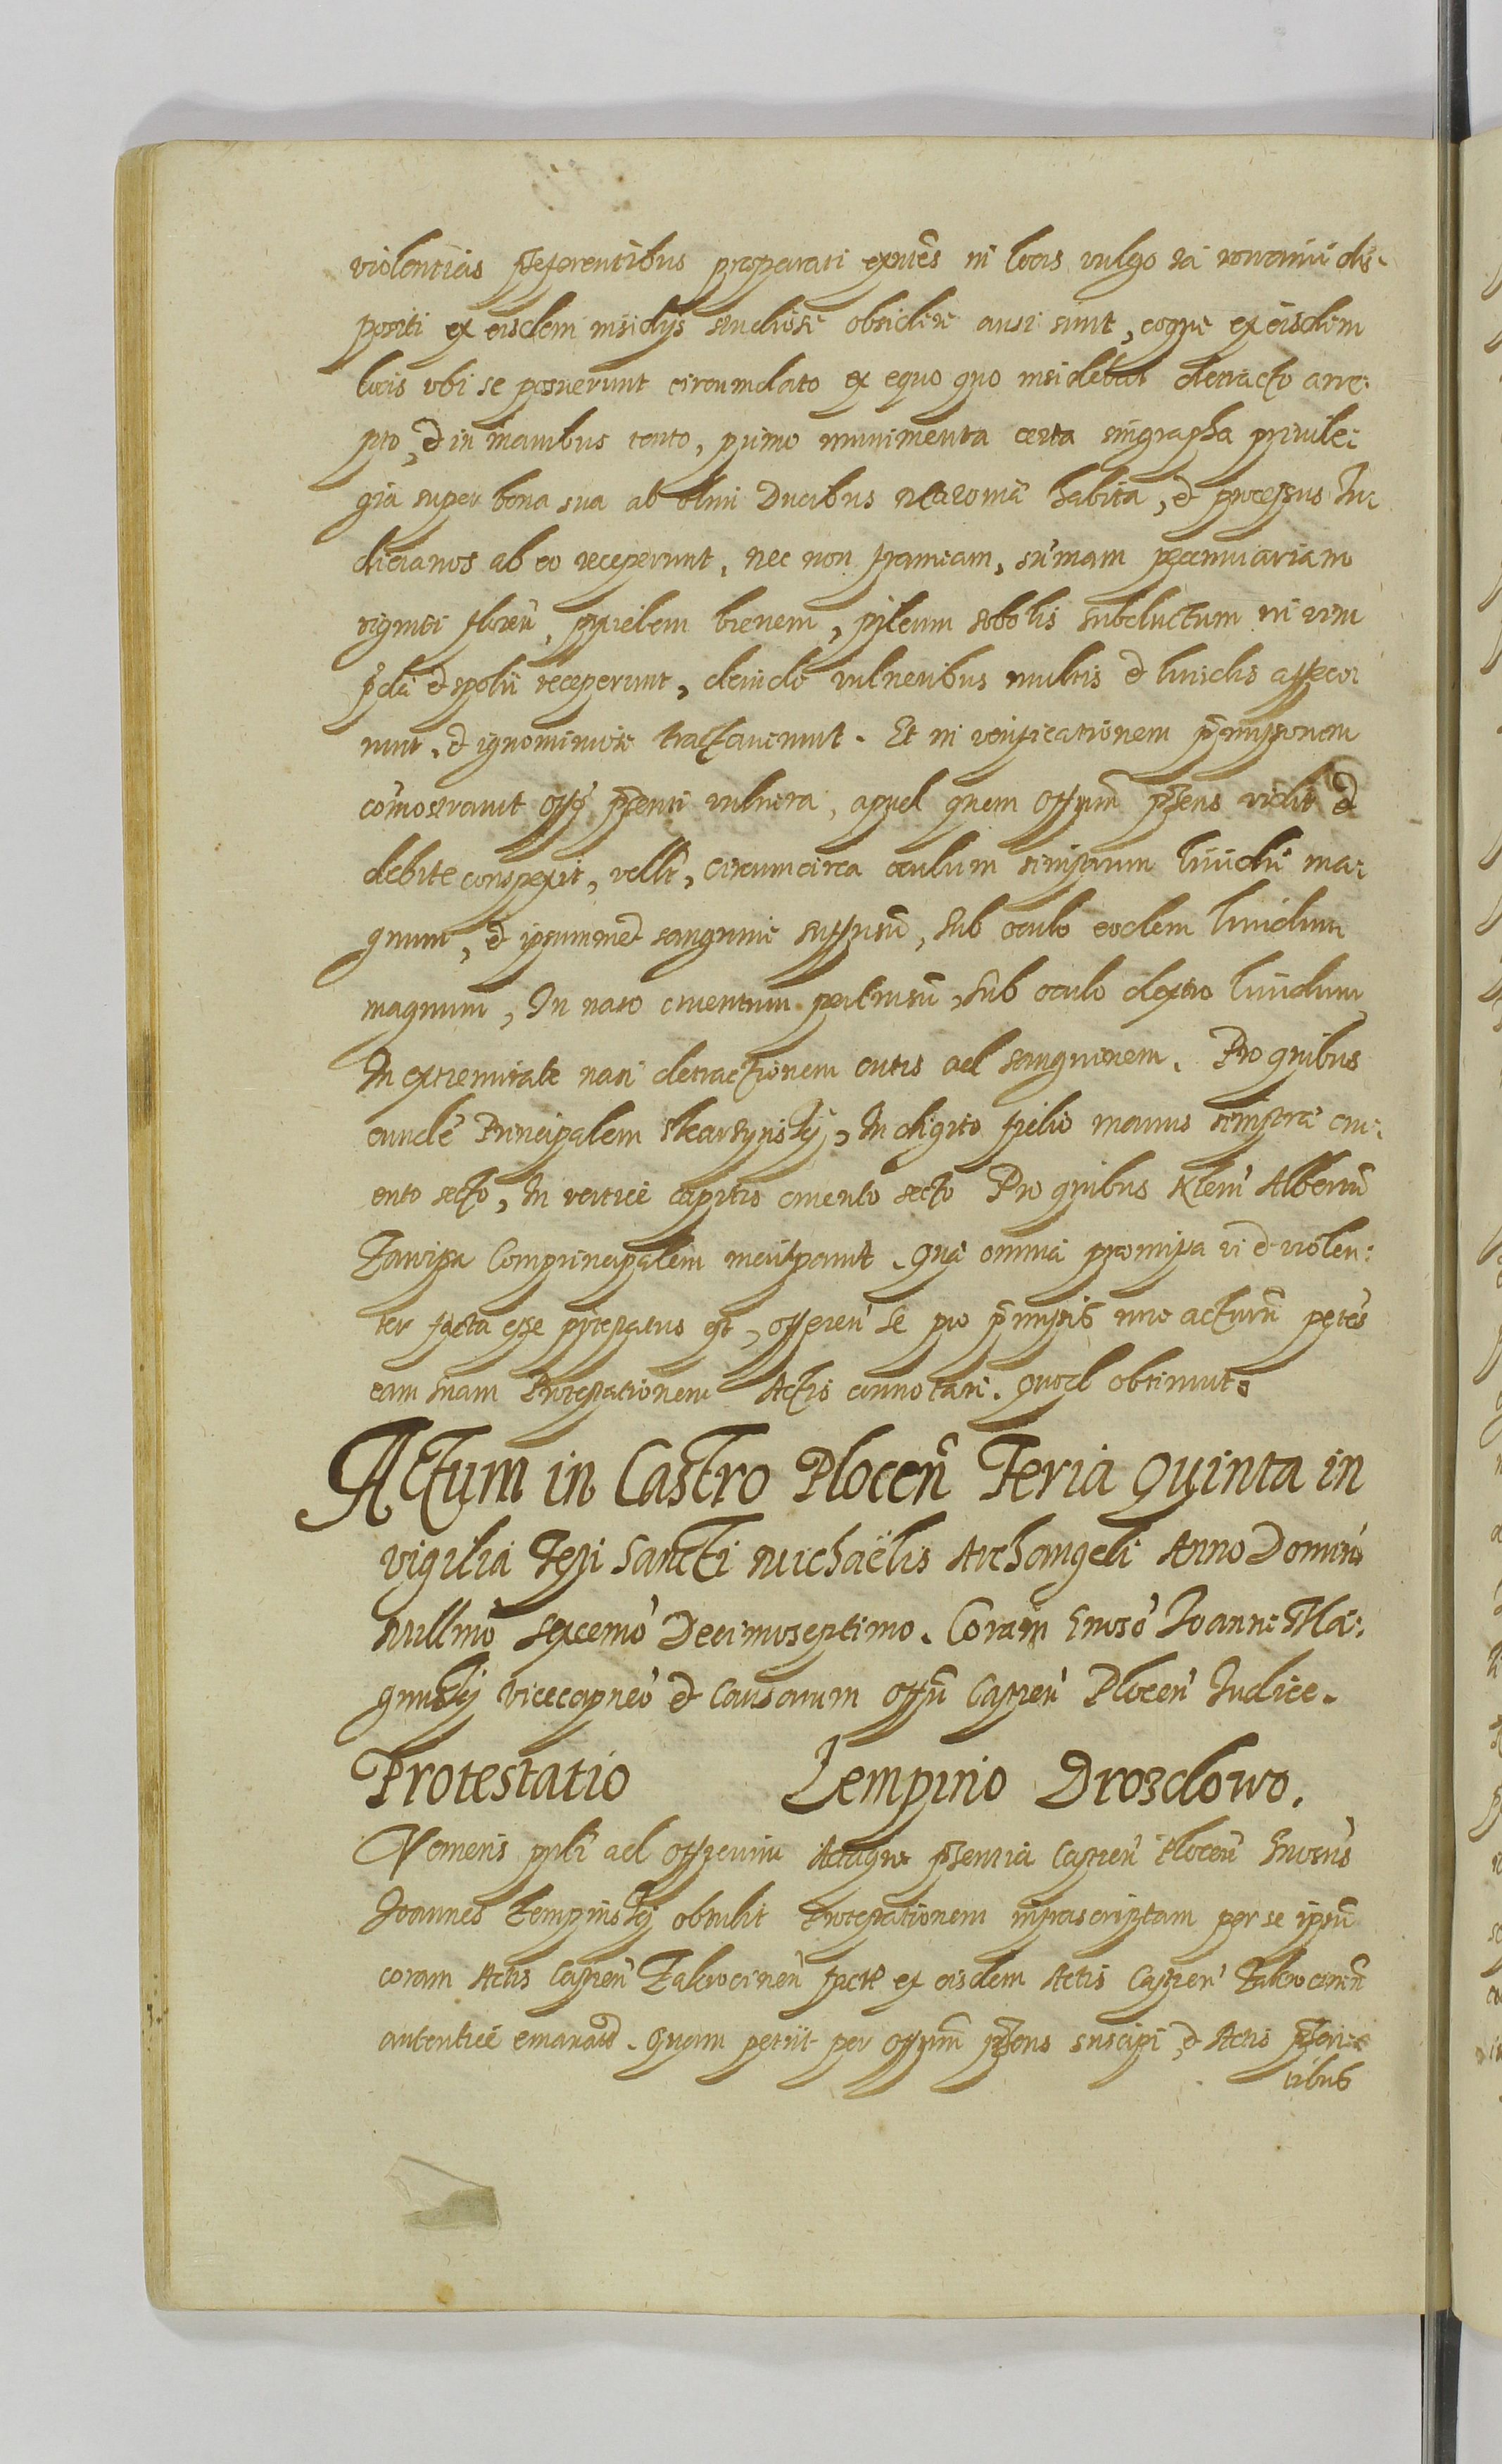 violentias præferentibus præparati exntes in locis vulgo za dis-
positi ex eisdem insidijs studiose obsidere ausi sunt, eoque ex eisdem
locis vbi se posuerunt circumdato ex equo quo insidebat detracto arre-
pto, et in manibus tento, primo munimenta certa singrapha priuile-
gia super bona sua ab olim Ducibus Mazouiæ habita, et processus Iu-
diciarios ab eo receperunt, nec non frameam, sūmam pecuniariam
viginti floren̄, breuem, pileum sobolis subductum in vim
p̄dæ et spolii receperunt, deinde vulneribus multis et liuidis affece-
runt, et ignominiose tractauerunt. Et in verificationem p̄missorum
cōmostrauit offō p̄senti vulnera, apud quem offium̄ p̄sens vidit et
debite conspexit, vellt, circumcirca oculum sinistrum liuidū ma-
gnum, et ipsummet sanguine suffusū, sub oculo eodem liuidum
magnum, In naso cruentum percussū, sub oculo dextro liuidum
In extremitate nasi detractionem cutis ad sanguinem. Pro quibus
eundē Principalem In digito manus sinistræ cru-
ento secto, In vertice capitis cruento secto Pro quibus Alberm̄
Comprincipalem inculpauit. Quæ omnia præmissa vi et violen-
ter facta esse protestatus est, offeren̄ se pro p̄missis iure acturū petēs
eam suam Protestationem Actis connotari. Quod obtinuit.
Actum in Castro Plocen̄ Feria Quinta in
vigilia Festi Sancti Michaëlis Archangeli Anno Domini
Millmo Sexcemo Decimoseptimo. Coram Gnoso Joanne Ma-
gnusky Vicecapneo et Causarum offii Castren̄ Plocen̄ Iudice.
Protestatio Lempino Drozdowo.
Veniens ad officium Actaque p̄sentia Castren̄ Plocen̄ Gnosus
Joannes Lempinskj obtulit Protestationem infrascriptam per se ipsū
coram Actis Castren̄ Zakrocimen̄ factā ex eisdem Actis Castren̄ Zakrocimen̄
autentice emanatā. Quam petiit per offium̄ p̄sens suscipi, et Actis p̄sen-
tibus